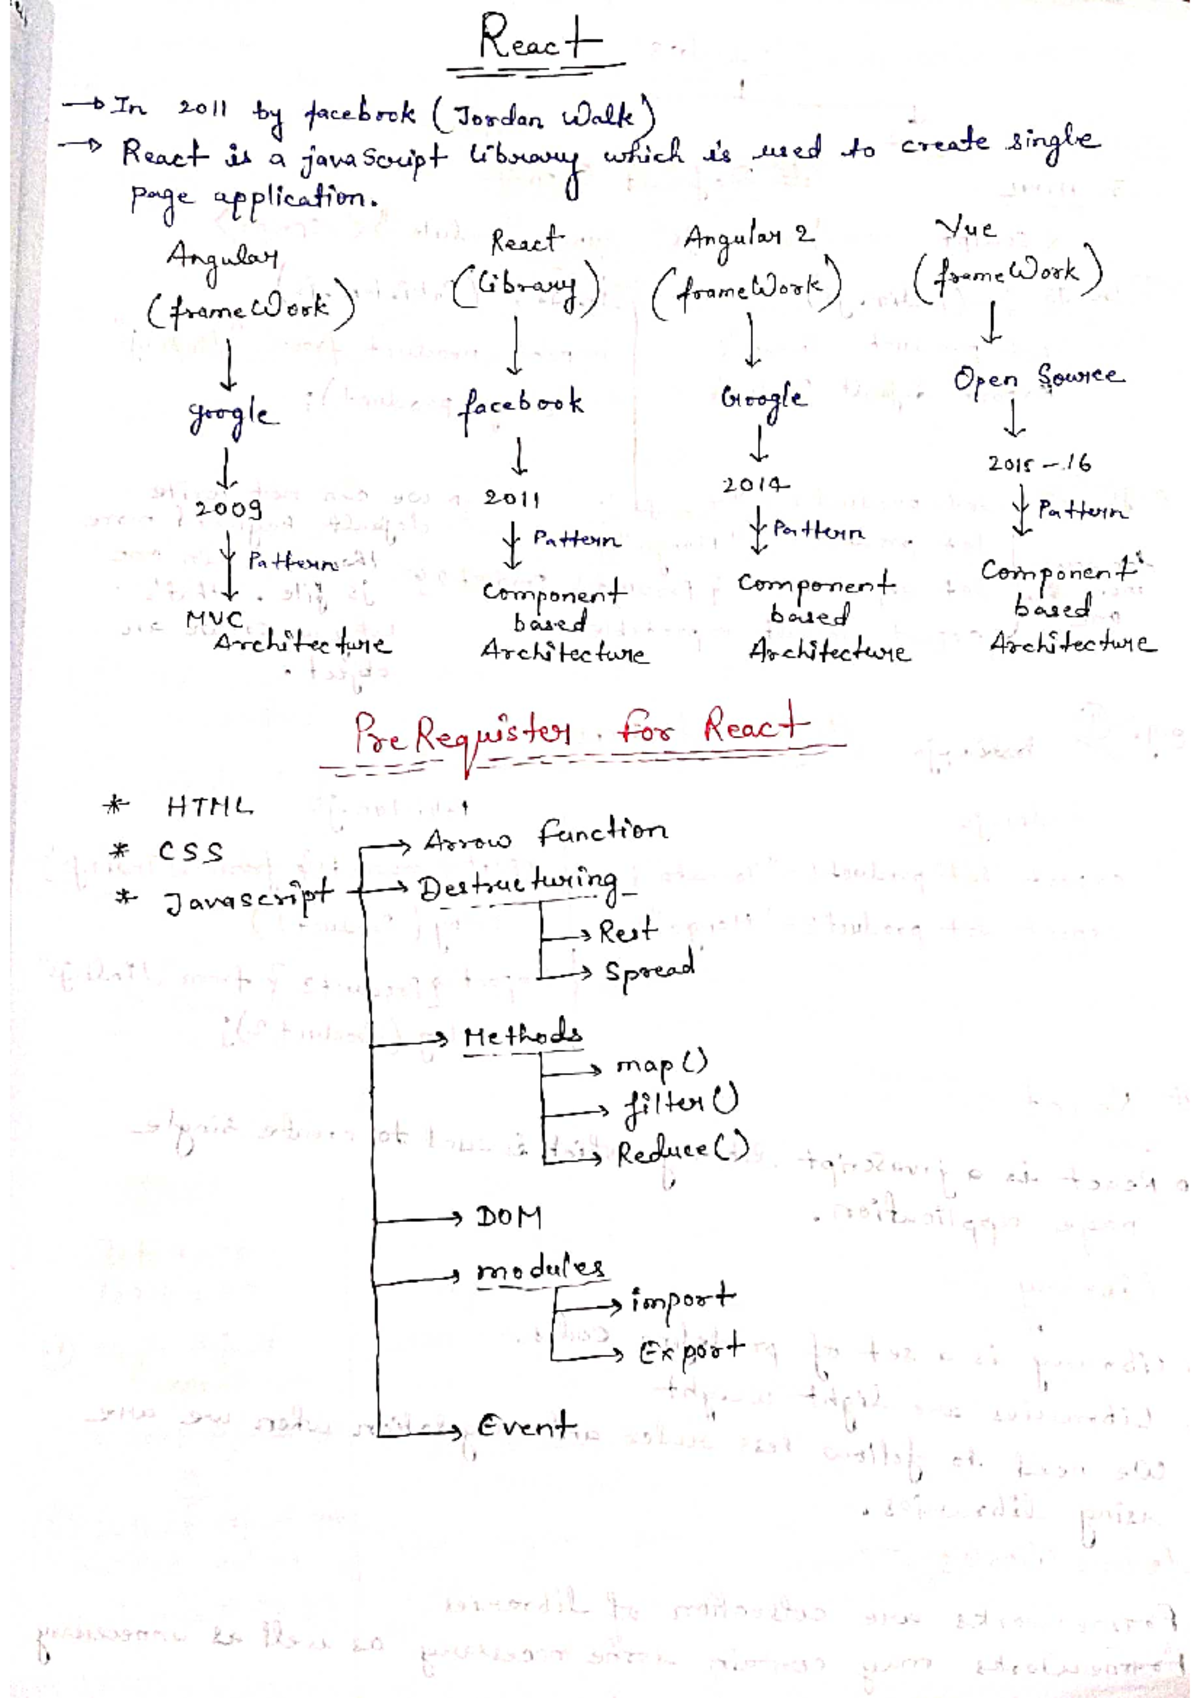 React
→ In 2011 by facebook (Jordan Walk)
→ React is a javaScript library which is used to create single
page application.
Angular
(frameWork)
↓
google
↓
2009
↓ Pattern
MVC
Architecture
React
(library)
↓
facebook
↓
2011
↓ Pattern
Component
based
Architecture
Angular 2
(frameWork)
↓
Google
↓
2014
↓ Pattern
Component
based
Architecture
Vue
(frameWork)
↓
Open Source
↓
2015-16
↓ Pattern
Component
based
Architecture
PreRequister for React
* HTML
* CSS
* Javascript
→ Arrow function
→ Destructuring
→ Rest
→ Spread
→ Methods
→ map()
→ filter()
→ Reduce()
→ DOM
→ modules
→ import
→ Export
→ Event